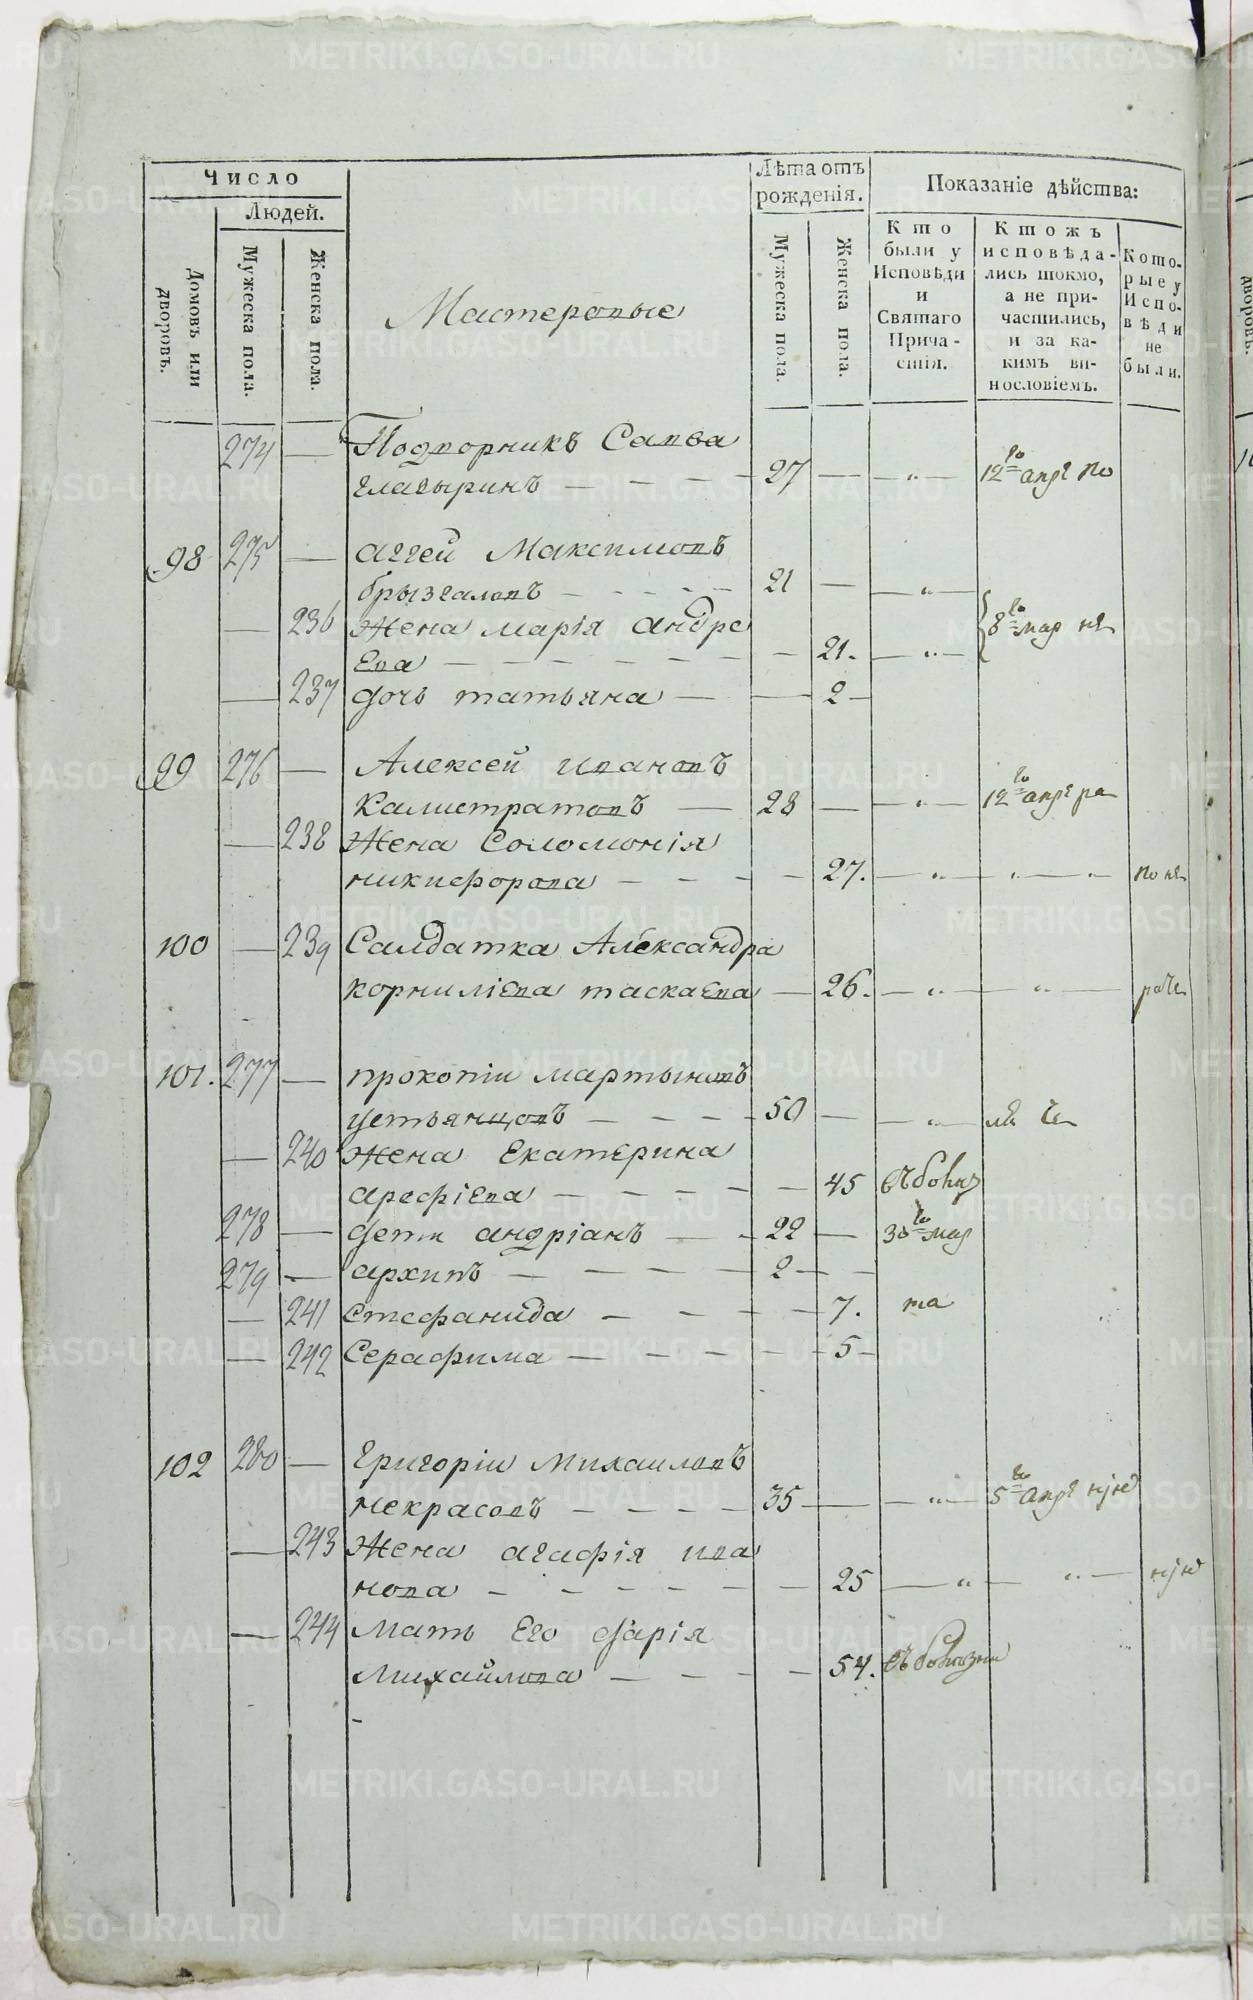 Число
Людей.
Лѣта отъ
рожденія.
Показаніе дѣйства:
Домовъ или
дворовъ.
Мужеска пола.
Женска пола.
Мастеровые
Мужеска пола.
Женска пола.
Кто
были у
Исповѣди
и
Святаго
Прича-
стія.
Ктожъ
исповѣда-
лись токмо,
а не при-
частились,
и за ка-
кимъ ви-
нословіемъ.
Кото-
рые у
Испо-
вѣди
не
были.
274 — Подпорникъ Савва
главыринъ — — — — 27 — — „ — 12го апр по
98 275 — аггей Максимовъ
брызгаловъ — — — — 21 — — „ —
— 236 Жена марія андре
ева — — — — — — — 21. — „ — 8го мар
— 237 дочь татьяна — — 2 —
99 276 — Алексей ивановъ
Калистратовъ — 28 — — „ — 12го апр ра
— 238 Жена Соломонія
никифорова — — — — 27. — „ — „ — „ по
100 — 239 Салдатка Александра
корниліева таскаева — 26. — „ — „ —
101. 277 — прокопіи мартыновъ
устьянцовъ — — — — 50 — — „ —
— 240 Жена Екатерина
арефіева — — — — — 45
278 — дети андріанъ — — 22 — 30го мар
279 — архипъ — — — — 2 — —
— 241 Стефанида — — — — 7. та
— 242 Серафима — — — — — 5 —
102 280 — Григоріи михаиловъ
некрасовъ — — — — 35 — — „ — 5го апр
— 243 Жена агафія ива
нова — — — — — — 25 — „ — „ —
— 244 мать Его дарія
михайлова — — — — 54. съ болезни